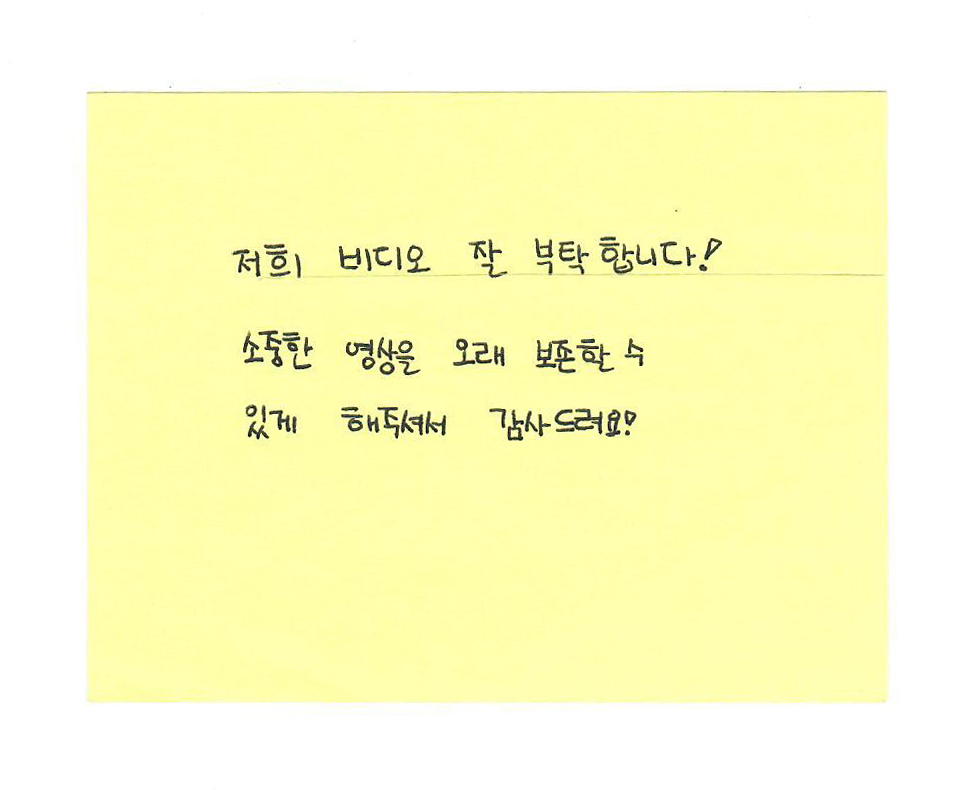 저희 비디오 잘 부탁합니다!
소중한 영상을 오래 보존할 수
있게 해주셔서 감사드려요!